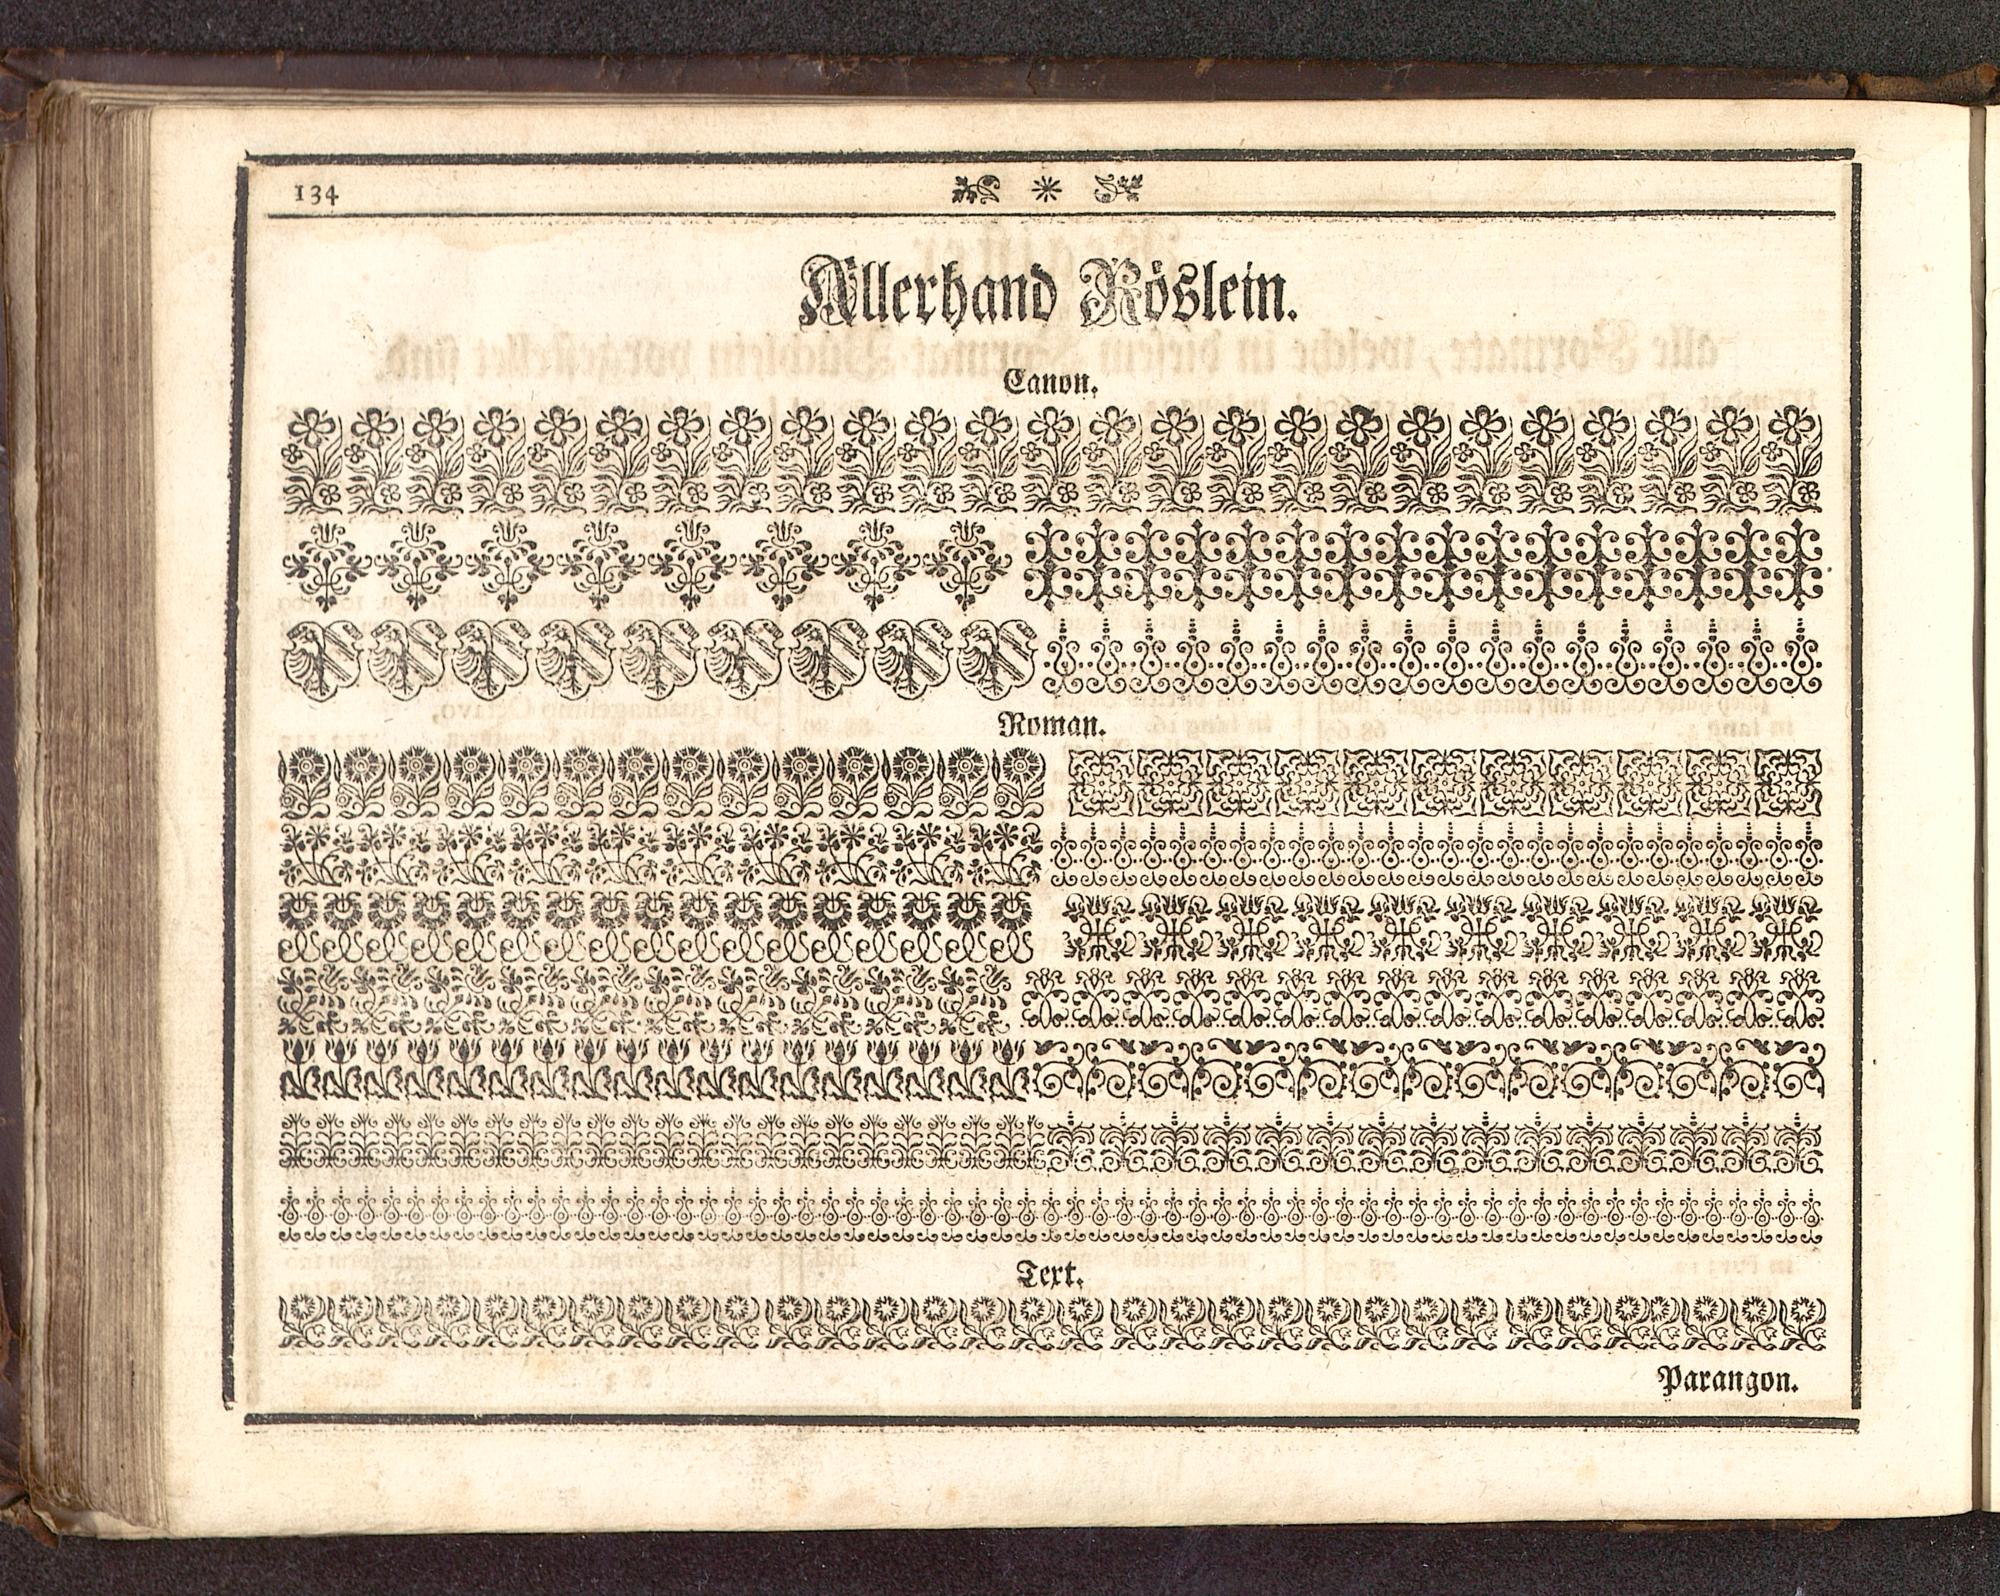 134
Allerhand Röslein.
Canon.
Roman.
Text.
Parangon.